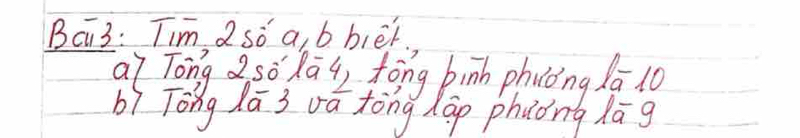 Bài 3: Tìm 2 số a, b biết.,
a) Tổng 2 số là 4, tổng bình phương là 10
b) Tổng là 3 và tổng lập phương là 9